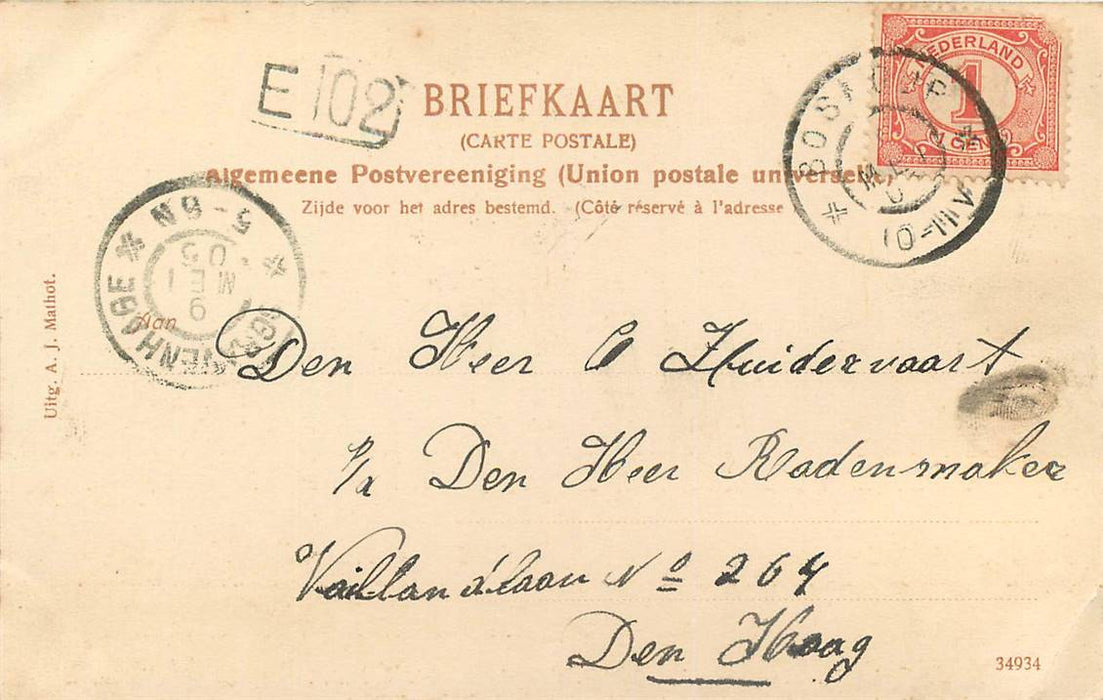 E 102
BRIEFKAART
(CARTE POSTALE)
Algemeene Postvereeniging (Union postale universelle)
Zijde voor het adres bestemd. (Côté réservé à l'adresse
NEDERLAND
1
CENT
BOSKOOP
10-11V
5-8N
9 MEI
05
Uitg. A. J. Mathot.
Aan
Den Heer C Zuidervaart
p/a Den Heer Radenmaker
Vaillandtlaan No 264
Den Haag
34934